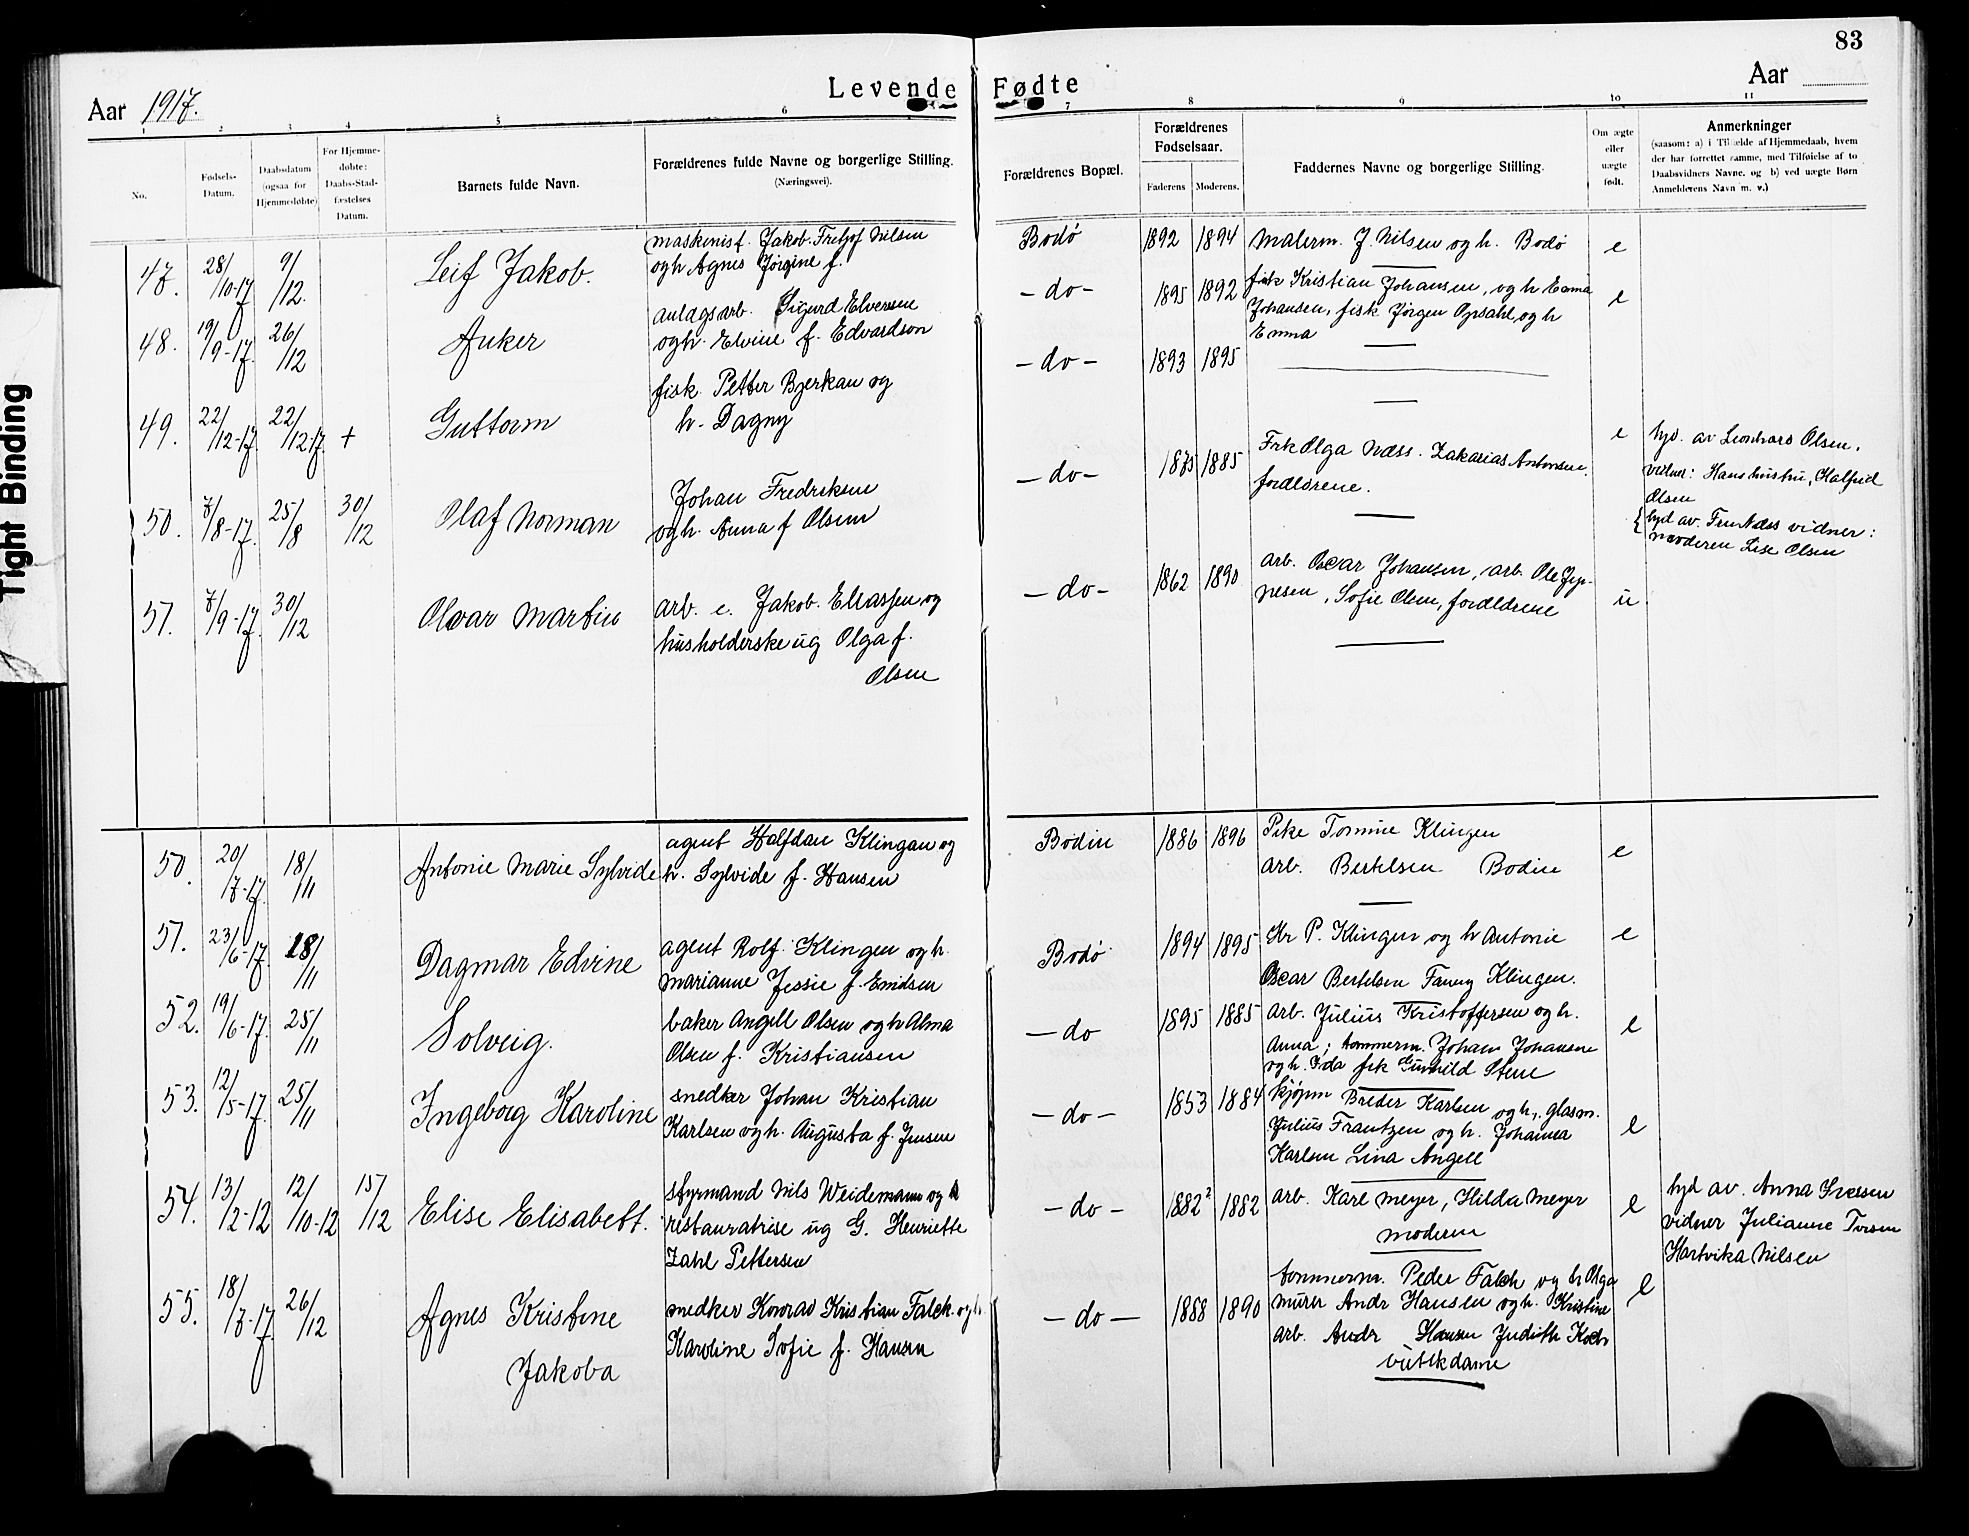 83
Levende Fødte
Aar 1917.
Aar
1 2 3 4 5 6 7 8 9 10 11
No.
Fødsels-
Datum.
Daabsdatum
(ogsaa for
Hjemmedøbte)
For Hjemme-
døbte:
Daabs-Stad-
fæstelses
Datum.
Barnets fulde Navn.
Forældrenes fulde Navne og borgerlige Stilling.
(Næringsvei).
Forældrenes Bopæl.
Forældrenes
Fødselsaar.
Faderens Moderens.
Faddernes Navne og borgerlige Stilling.
Om ægte
eller
uægte
født.
Anmerkninger
(saasom: a) i Tilfælde af Hjemmedaab, hvem
der har forrettet samme, med Tilføielse af to
Daabsvidners Navne, og b) ved uægte Børn
Anmelderens Navn m. v.)
47. 28/10-17 9/12. Leif Jakob.
maskinist. Jakob Fretjof Nilsen
og h Agnes Jørgine f.
Bodø 1892 1894
malerm. J. Nilsen og h. Bodø
e
48. 19/9-17. 26/12 Anker
anlagsarb. Sigurd Elversen
og h. Elvine f. Edvardson
-do- 1895 1892
fisk Kristian Johansen, og h Emma
Johansen, fisk Jørgen Opsahl, og h
Emma
e
49. 22/12-17. 22/12-17. + Guttorm
fisk. Petter Bjerkan og
h. Dagny
-do- 1893 1895
e
hjd. av Leonhard Olsen.
vidner: Hans hustru, Halfrid
Olsen
50. 7/8-17. 25/8 30/12 Olaf Norman
Johan Fredriksen
og h. Anna f Olsen
-do- 1875 1885
Frk Olga Næss. Zakarias Antonsen.
forældrene.
hjd av. Fru Næss vidner:
moderen Lise Olsen
51. 7/9-17. 30/12 Olvar Martin
arb. e. Jakob. Eliassen og
husholderske ug Olga f.
Olsen
-do- 1862 1890
arb. Oscar Johansen, arb. Ole
nesen, Sofie Olsen, forældrene
u.
50. 20/7-17. 18/11 Antonie Marie Sylvide
agent Halfdan Klingan og
h. Sylvide f. Hansen
Bodin 1886 1896
Pike Tomine Klingen
arb. Bertelsen Bodin
e
51. 23/6-17. 18/11 Dagmar Edvine
agent Rolf Klingen og h.
marianne Jessie f. Emilsen
Bodø 1894 1895
Hr P. Klingen og h Antonie
Oscar Bertelsen Fanny Klingen.
e
52. 19/6-17. 25/11 Solveig.
baker Angell Olsen og h Alma
Olsen f. Kristiansen
-do 1895 1885
arb. Julius Kristoffersen og h.
Anna; tømmerm. Johan Johansen
og h. Ida frk Gunhild Stene
e
53. 12/5-17. 25/11 Ingeborg Karoline
snedker Johan Kristian
Karlsen og h. Augusta f. Jensen
-do- 1853 1884
kjøpm Breder Karlsen og h., glasm.
Julius Frantzen og h. Johanna
Karlsen Lina Angell
e
54. 13/2-12 12/10-12 15/12 Elise Elisabeth.
styrmand Nils Weidemann og h
restauratrise ug G. Henriette
Zahl Pettersen
-do- 1882? 1882
arb. Karl Meyer, Hilda Meyer
moderen
e
hjd av. Anna Iversen
vidner Julianne Iversen
Hartvika Nilsen
55. 18/7-17. 26/12 Agnes Kristine
Jakoba
snedker Konrad Kristian Falck. og h.
Karoline Sofie f. Hansen
-do- 1888 1890
tømmerm. Peder Falch og h Olga
murer Andr Hansen og h. Kristine
arb. Andr Hansen Judith Koch
butikdame
e
Tight Binding